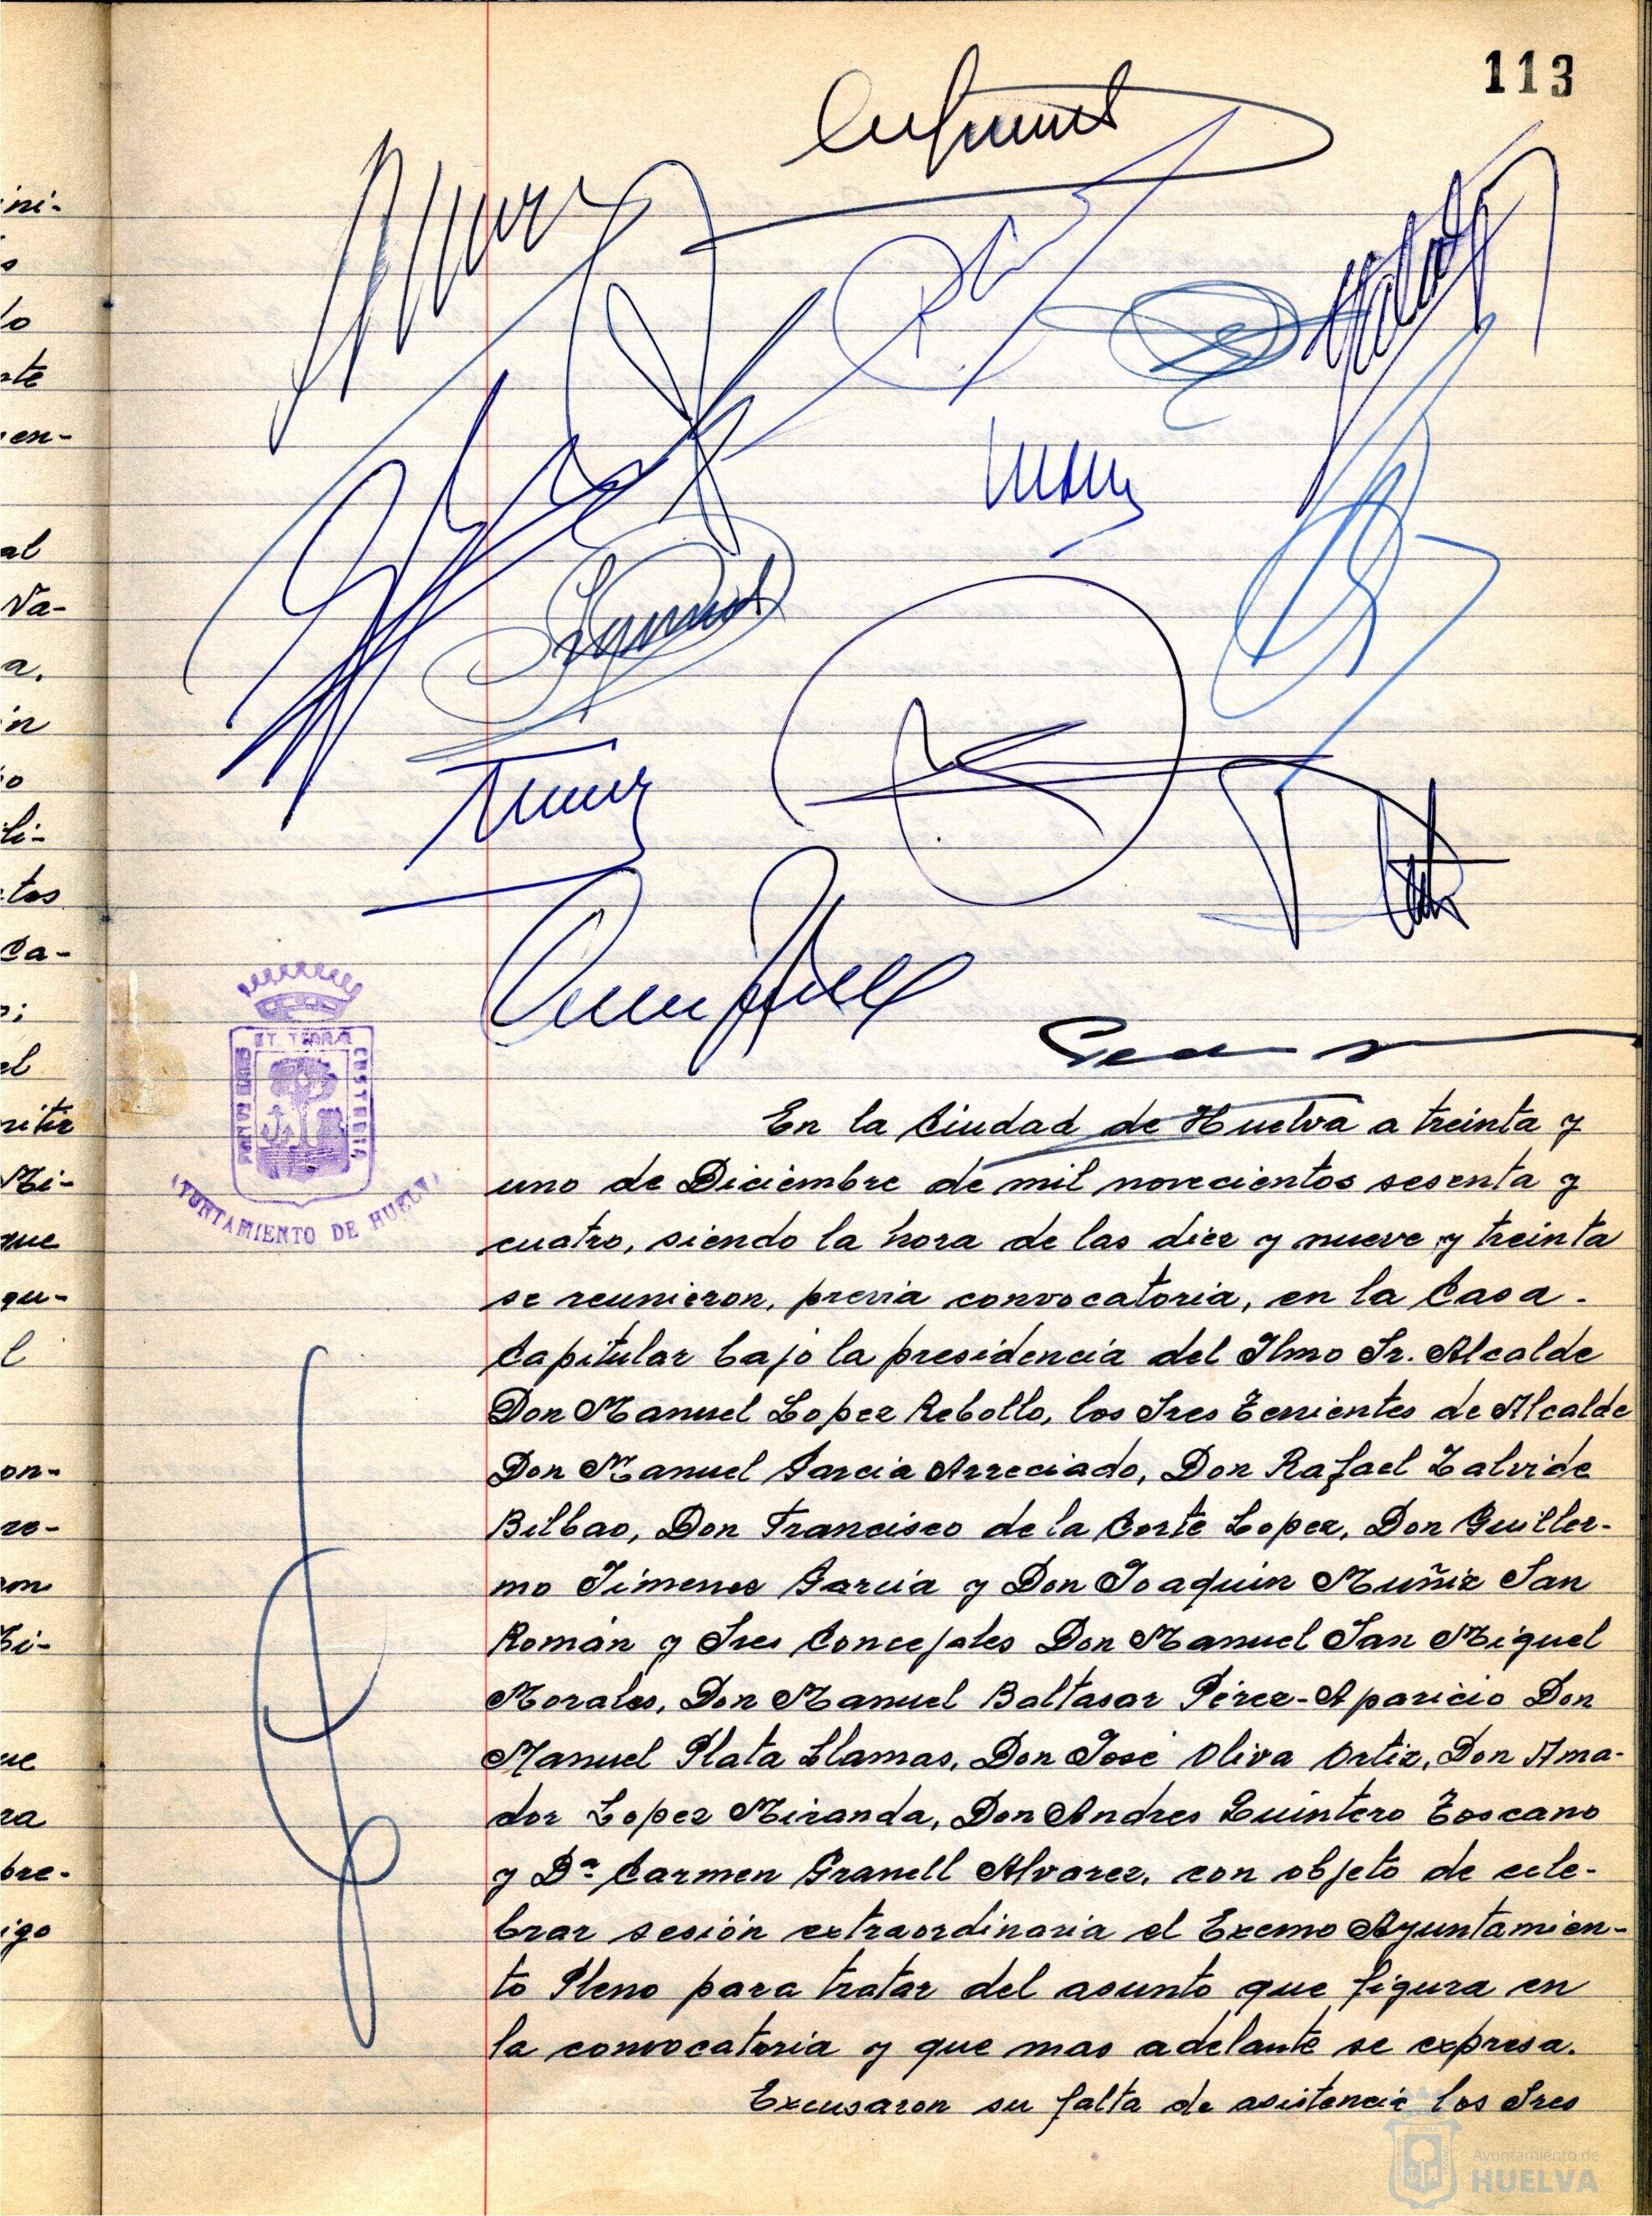 113
ini-
s
lo
nte
en-
al
Va-
a.
in
io
li-
tos
Ca-
el
mitir
Mi-
que
gu-
l
on-
ro-
on
ue
ra
bre-
igo
PORTUS MARIS
ET TERRÆ
CUSTODIA
AYUNTAMIENTO DE HUELVA
En la Ciudad de Huelva a treinta y
uno de Diciembre de mil novecientos sesenta y
cuatro, siendo la hora de las diez y nueve y treinta
se reunieron, previa convocatoria, en la Casa
Capitular bajo la presidencia del Ilmo Sr. Alcalde
Don Manuel Lopez Rebollo, los Sres Tenientes de Alcalde
Don Manuel Garcia Arreciado, Don Rafael Zalvide
Bilbao, Don Francisco de la Corte Lopez, Don Guiller-
mo Jimenez Garcia y Don Joaquin Muñiz San
Román y Sres Concejales Don Manuel San Miguel
Morales, Don Manuel Baltasar Pérez-Aparicio Don
Manuel Plata Llamas, Don José Oliva Ortiz, Don Ama-
dor Lopez Miranda, Don Andres Quintero Toscano
y Dª Carmen Granell Alvarez, con objeto de cele-
brar sesión extraordinaria el Excmo Ayuntamien-
to Pleno para tratar del asunto que figura en
la convocatoria y que mas adelante se expresa.
Excusaron su falta de asistencia los Sres
Ayuntamiento de
HUELVA